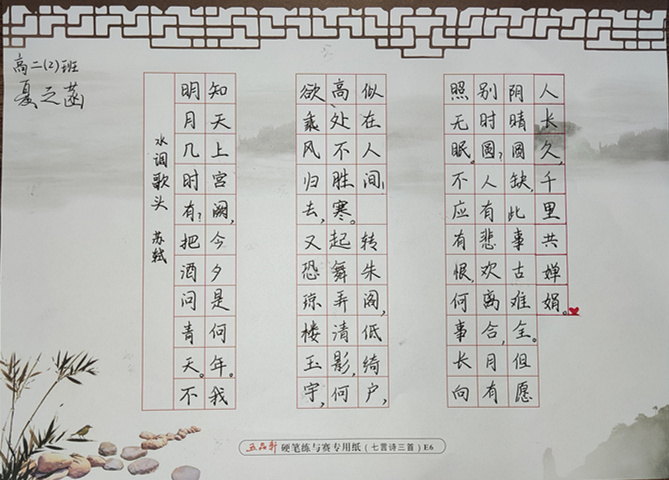 高二(2)班
夏之菡
水调歌头 苏轼
明月几时有?把酒问青天。不
知天上宫阙,今夕是何年。我
欲乘风归去,又恐琼楼玉宇,
高处不胜寒。起舞弄清影,何
似在人间,转朱阁,低绮户,
照无眠。不应有恨,何事长向
别时圆?人有悲欢离合,月有
阴晴圆缺,此事古难全。但愿
人长久,千里共婵娟。
五品轩 硬笔练与赛专用纸(七言诗三首)E6